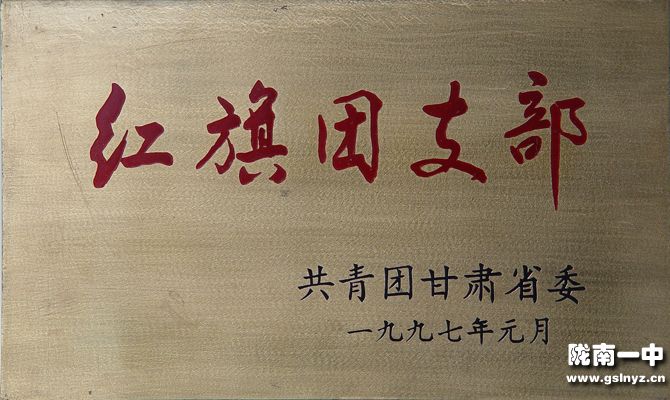 红旗团支部
共青团甘肃省委
一九九七年元月
陇南一中
www.gslnyz.cn